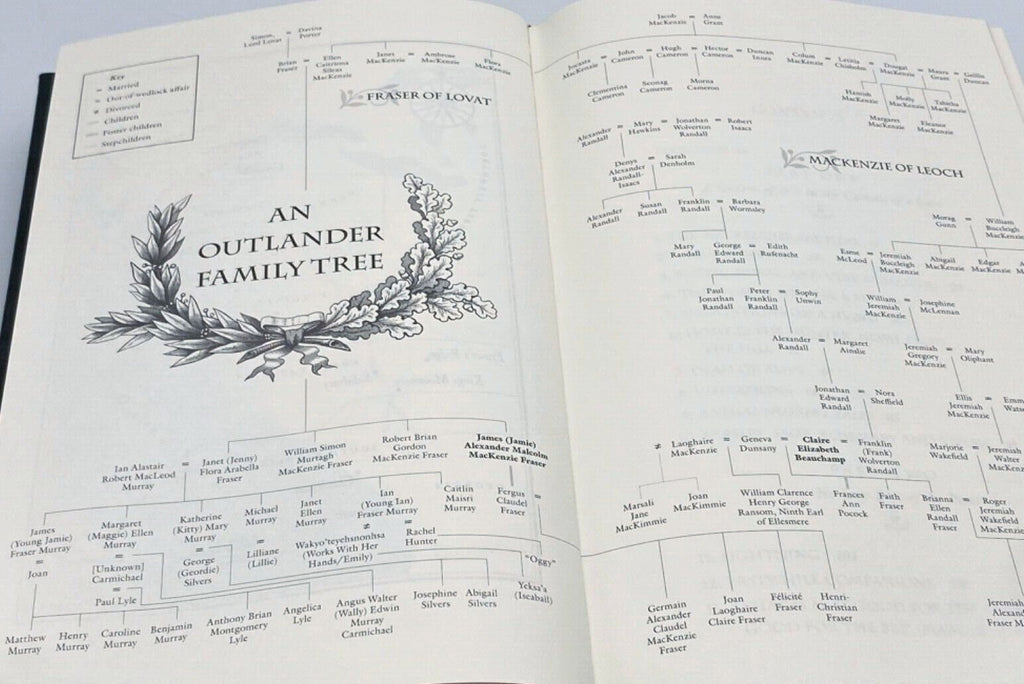 Simon,
Lord Lovat
=
Davina
Porter
Key
= Married
≈ Out-of-wedlock affair
≠ Divorced
Children
Foster children
Stepchildren
Brian
Fraser
=
Ellen
Caitriona
Sileas
MacKenzie
Janet
MacKenzie
=
Ambrose
MacKenzie
Flora
MacKenzie
FRASER OF LOVAT
AN
OUTLANDER
FAMILY TREE
Ian Alastair
Robert MacLeod
Murray
=
Janet (Jenny)
Flora Arabella
Fraser
William Simon
Murtagh
MacKenzie Fraser
Robert Brian
Gordon
MacKenzie Fraser
James (Jamie)
Alexander Malcolm
MacKenzie Fraser
James
(Young Jamie)
Fraser Murray
=
Joan
Margaret
(Maggie) Ellen
Murray
=
[Unknown]
Carmichael
=
Paul Lyle
Katherine
(Kitty) Mary
Murray
=
George
(Geordie)
Silvers
Michael
Murray
=
Lilliane
(Lillie)
Janet
Ellen
Murray
Ian
(Young Ian)
Fraser Murray
≠
Wakyo'teyehsnonhsa
(Works With Her
Hands/Emily)
=
Rachel
Hunter
Caitlin
Maisri
Murray
Fergus
Claudel
Fraser
=
"Oggy"
Yeksa'a
(Iseabaìl)
Matthew
Murray
Henry
Murray
Caroline
Murray
Benjamin
Murray
Anthony Brian
Montgomery
Lyle
Angelica
Lyle
Angus Walter
(Wally) Edwin
Murray
Carmichael
Josephine
Silvers
Abigail
Silvers
Jacob
MacKenzie
=
Anne
Grant
Jocasta
MacKenzie
=
John
Cameron
=
Hugh
Cameron
=
Hector
Cameron
=
Duncan
Innes
Colum
MacKenzie
=
Letitia
Chisholm
Dougal
MacKenzie
=
Maura
Grant
Geillis
Duncan
Clementina
Cameron
Seonag
Cameron
Morna
Cameron
Hamish
MacKenzie
Molly
MacKenzie
Tabitha
MacKenzie
Margaret
MacKenzie
Eleanor
MacKenzie
Alexander
Randall
=
Mary
Hawkins
=
Jonathan
Wolverton
Randall
=
Robert
Isaacs
MACKENZIE OF LEOCH
Denys
Alexander
Randall-
Isaacs
=
Sarah
Denholm
Alexander
Randall
Susan
Randall
Franklin
Randall
=
Barbara
Wormsley
Morag
Gunn
=
William
Buccleigh
MacKenzie
Mary
Randall
George
Edward
Randall
=
Edith
Rufenacht
Esme
McLeod
=
Jeremiah
Buccleigh
MacKenzie
Abigail
MacKenzie
Edgar
MacKenzie
Paul
Jonathan
Randall
Peter
Franklin
Randall
=
Sophy
Unwin
William
Jeremiah
MacKenzie
=
Josephine
McLennan
Alexander
Randall
=
Margaret
Ainslie
Jeremiah
Gregory
MacKenzie
=
Mary
Oliphant
Jonathan
Edward
Randall
=
Nora
Sheffield
Ellis
Jeremiah
MacKenzie
=
≠
Laoghaire
MacKenzie
=
Geneva
Dunsany
=
Claire
Elizabeth
Beauchamp
=
Franklin
(Frank)
Wolverton
Randall
Marjorie
Wakefield
=
Jeremiah
Walter
Marsali
Jane
MacKimmie
Joan
MacKimmie
William Clarence
Henry George
Ransom, Ninth Earl
of Ellesmere
Frances
Ann
Pocock
Faith
Fraser
Brianna
Ellen
Randall
Fraser
=
Roger
Jeremiah
Wakefield
Germain
Alexander
Claudel
MacKenzie
Fraser
Joan
Laoghaire
Claire Fraser
Félicité
Fraser
Henri-
Christian
Fraser